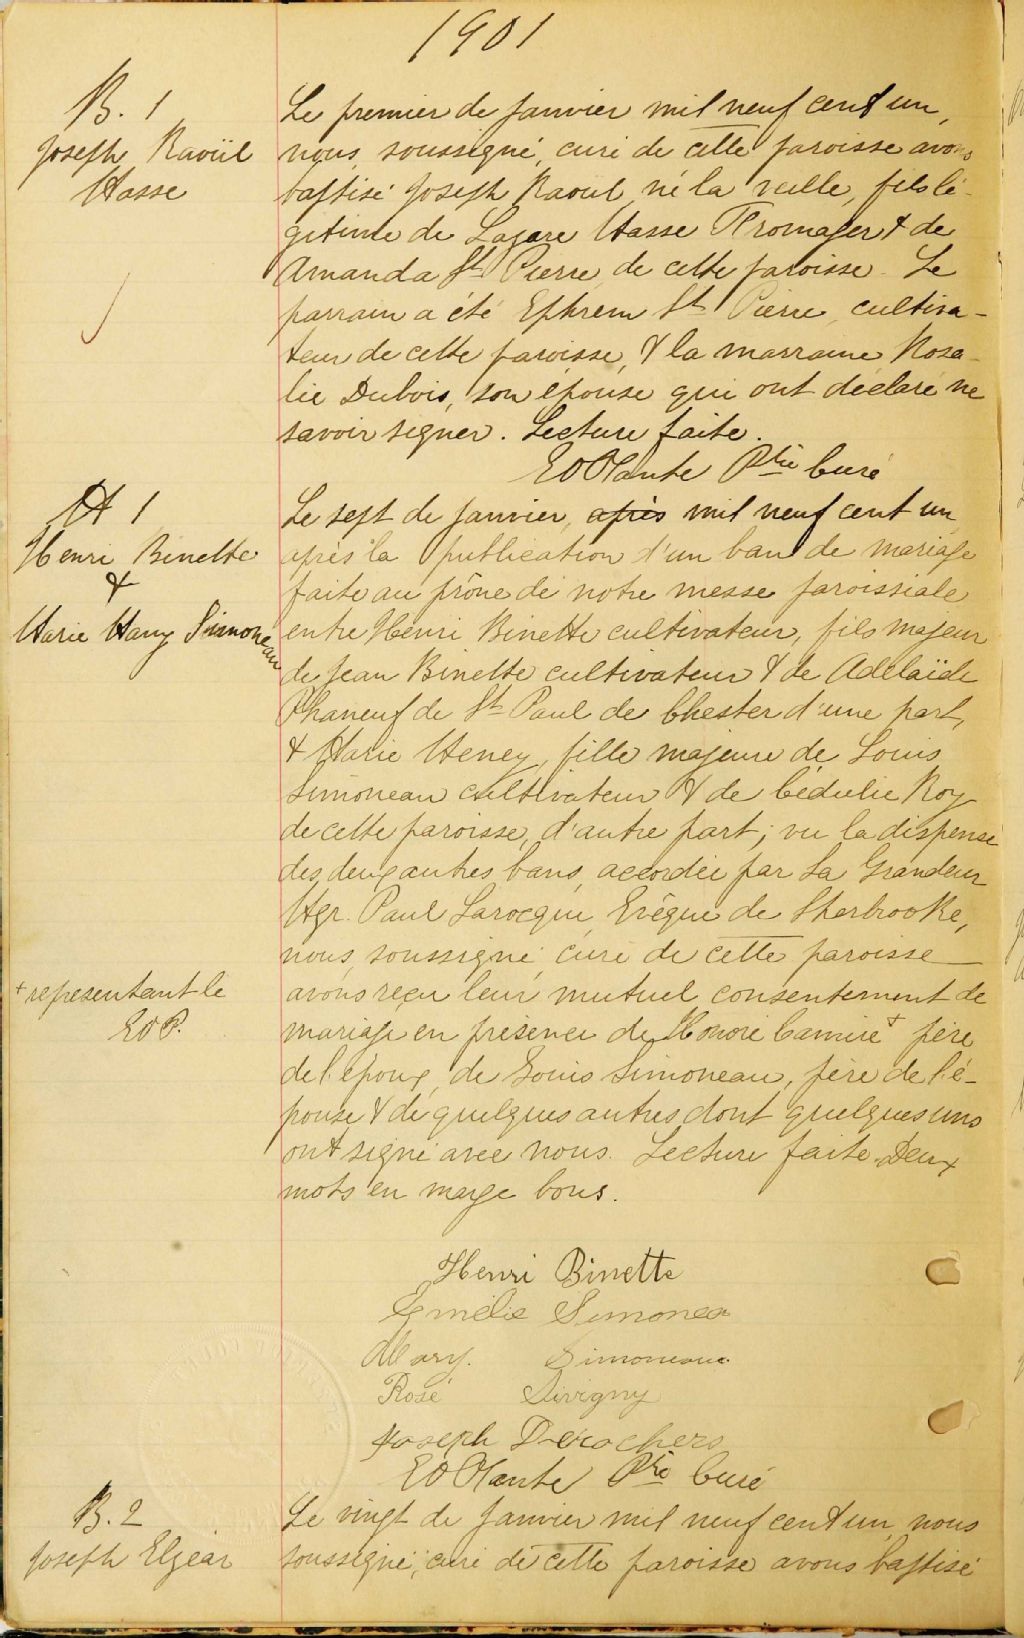 1901
B. 1
Joseph Raoül
Masse
Le premier de Janvier mil neuf cent un,
nous, soussigné, curé de cette paroisse avons
baptisé Joseph Raoul, né la veille, fils lé-
gitime de Lazare Masse Fromager & de
Amanda St Pierre, de cette paroisse. Le
parrain a été Ephrem St Pierre, cultiva-
teur de cette paroisse, & la marraine Rosa-
lie Dubois, son épouse qui ont déclaré ne
savoir signer. Lecture faite.
EO Plante Ptre Curé
M 1
Henri Binette
&
Marie Many Simoneau
Le sept de Janvier, après mil neuf cent un
après la publication d'un ban de mariage
faite au prône de notre messe paroissiale
entre Henri Binette cultivateur, fils majeur
de Jean Binette cultivateur & de Adélaïde
Phaneuf de St Paul de Chester d'une part,
& Marie Meney, fille majeure de Louis
Simoneau cultivateur & de Cédulie Roy
de cette paroisse, d'autre part; vu la dispense
des deux autres bans accordée par Sa Grandeur
Mgr. Paul Larocque, Evêque de Sherbrooke,
nous, soussigné, curé de cette paroisse
avons reçu leur mutuel consentement de
mariage en présence de Honoré Camiré + père
+ representant le
EOP.
de l'époux, de Louis Simoneau, père de l'é-
pouse & de quelques autres dont quelques uns
ont signé avec nous. Lecture faite. Deux
mots en marge bons.
Henri Binette
Emélie Simonea
Mary. Simoneau
Rosé Sivigny
Joseph Derochers
EO Plante Ptre Curé
B. 2
Joseph Elzéar
Le vingt de Janvier mil neuf cent un, nous
soussigné, curé de cette paroisse avons baptisé